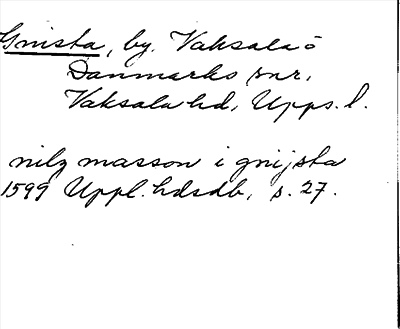 Gnista, by. Vaksala ö
Danmarks snr.
Vaksala hd, Upps. l.
nilz masson i gnijsta
1599 Uppl. hdsdb, s. 27.